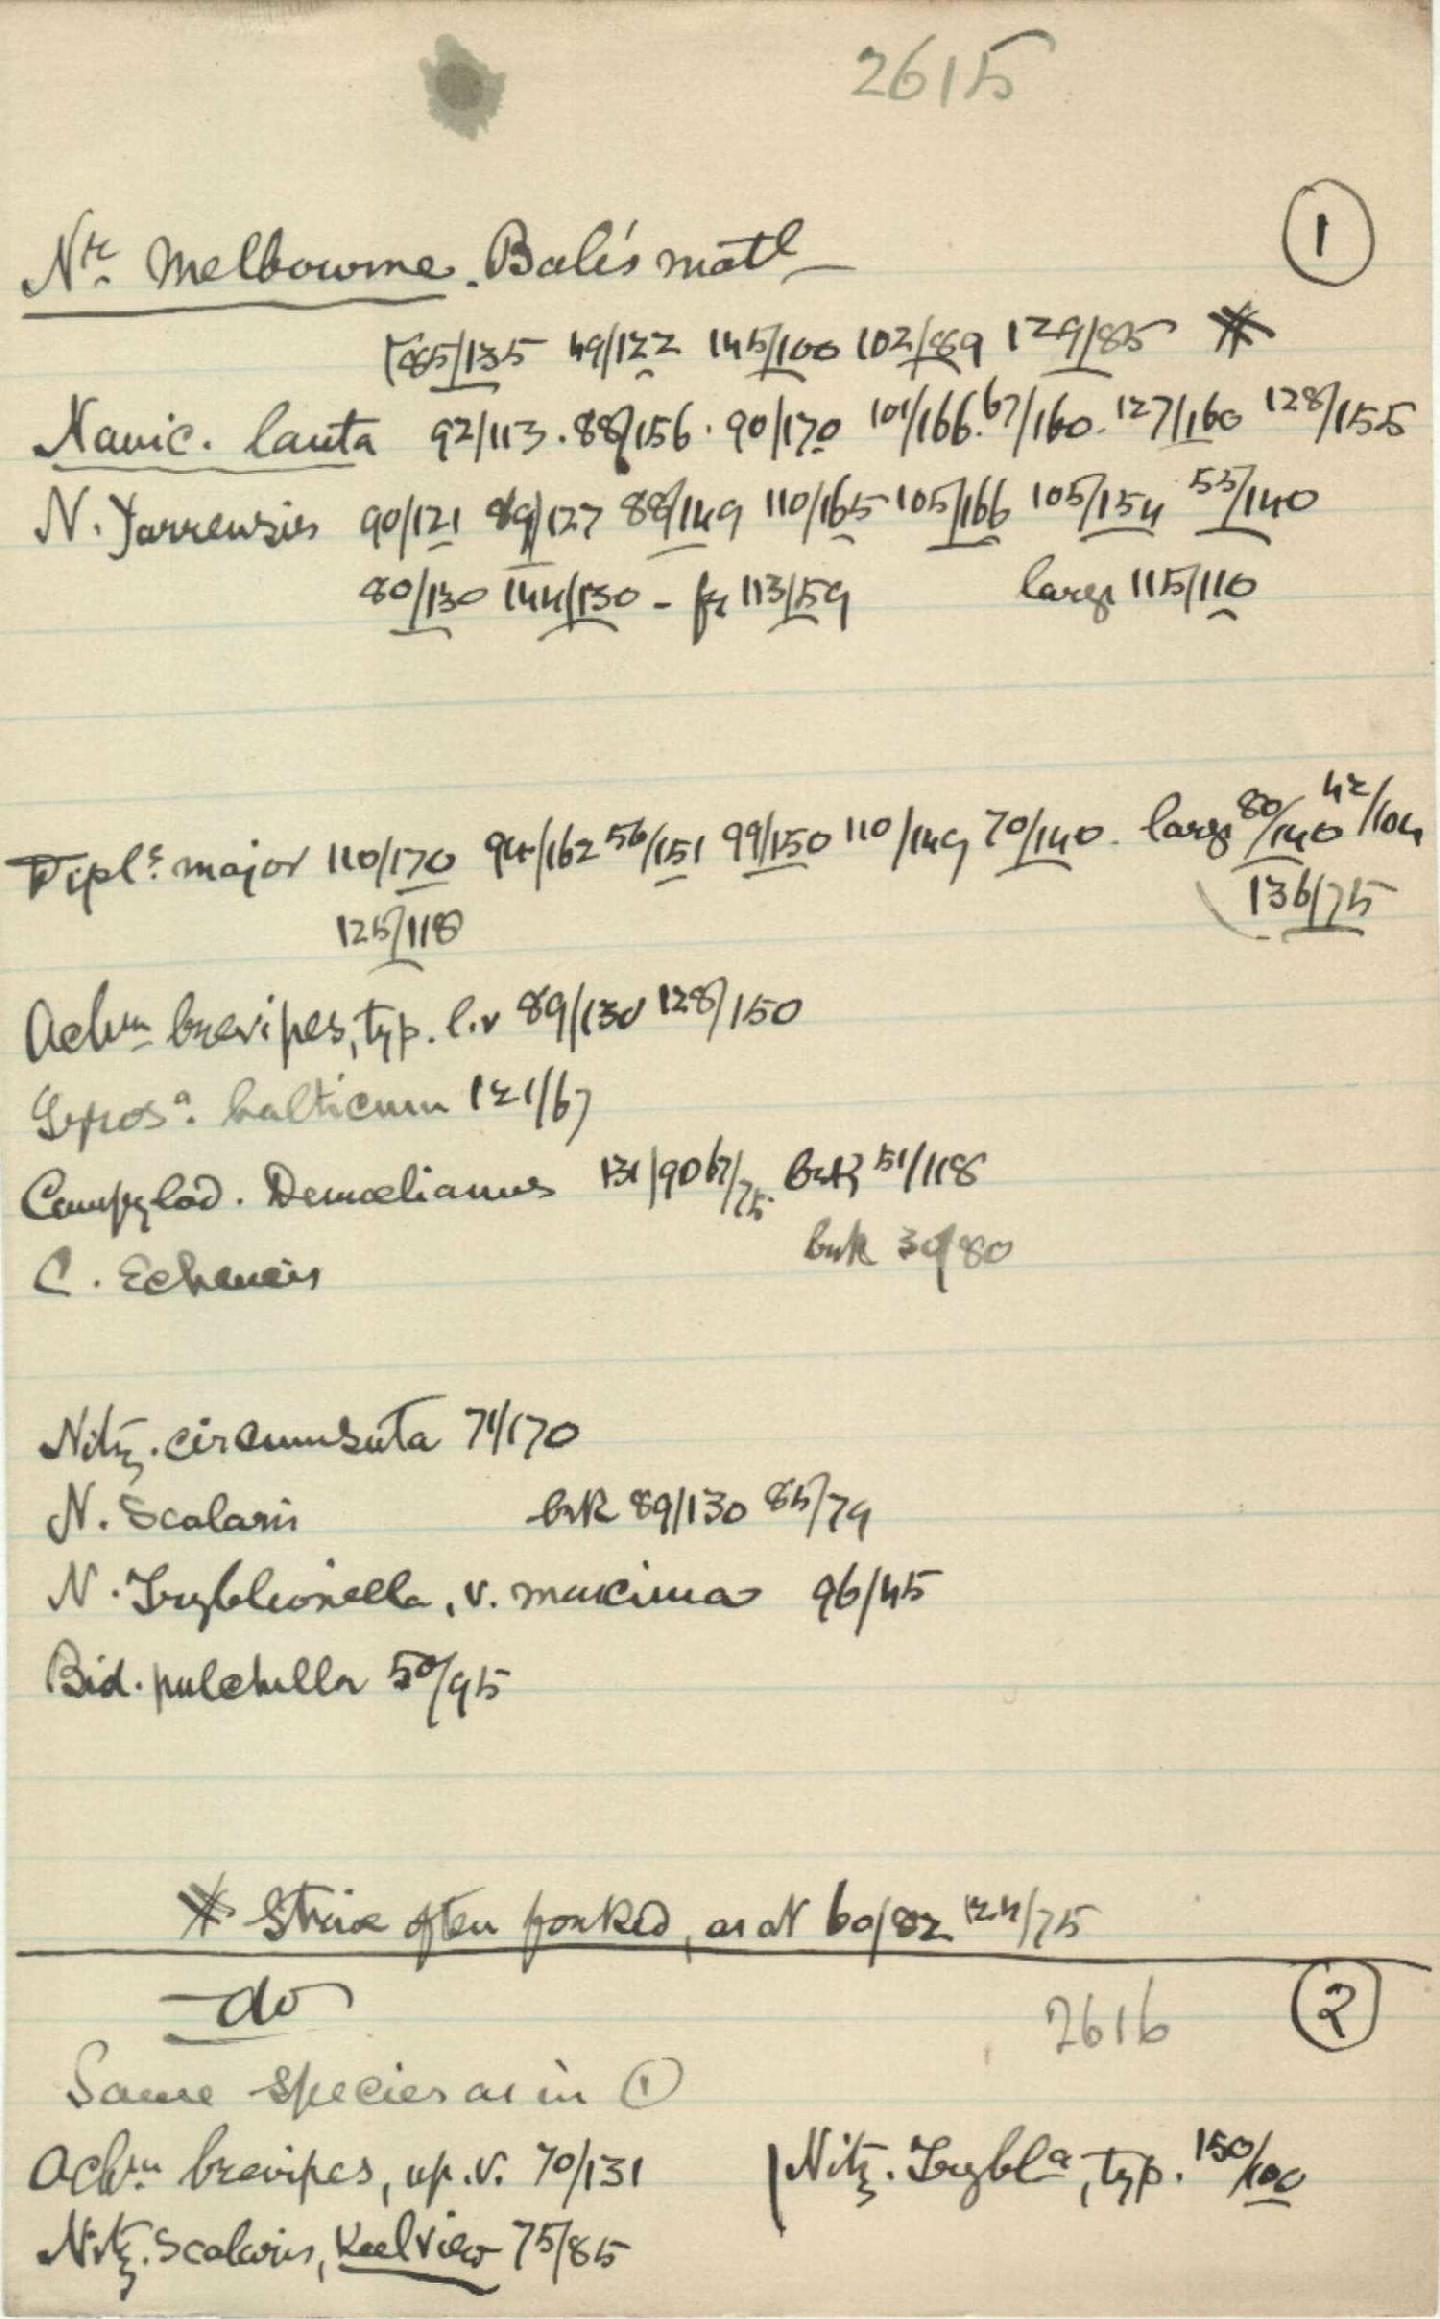 2615
①
Nr. Melbourne. Bale's matl
85/135 49/122 145/100 102/89 129/85 *
Navic. lauta 92/113 . 88/156 . 90/170 101/166. 67/160. 127/160 128/155
N. Yarrensis 90/121 89/127 88/149 110/165 105/166 105/154 53/140
80/130 144/130 - fr 113/59 large 115/110
Dipls. major 110/170 94/162 56/151 99/150 110/149 70/140. large 80/140 42/104
125/118 136/75
Achn. brevipes, typ. l.v 89/130 128/150
Gyrosa. balticum 121/67
Campylod. Demelianus 131/90 67/75 brk 51/118
brk 30/80
C. Echeneis
Nitz. circumsuta 71/170
N. Scalaris brk 89/130 85/79
N. Tryblionella, v. maxima 96/45
Bid. pulchella 50/95
* Striae often forked, as at 60/82 124/75
do
2616 ②
Same species as in ①
Achn. brevipes, up.v. 70/131 Nitz. Trybla, typ. 150/100
Nitz. Scalaris, Keel View 75/85